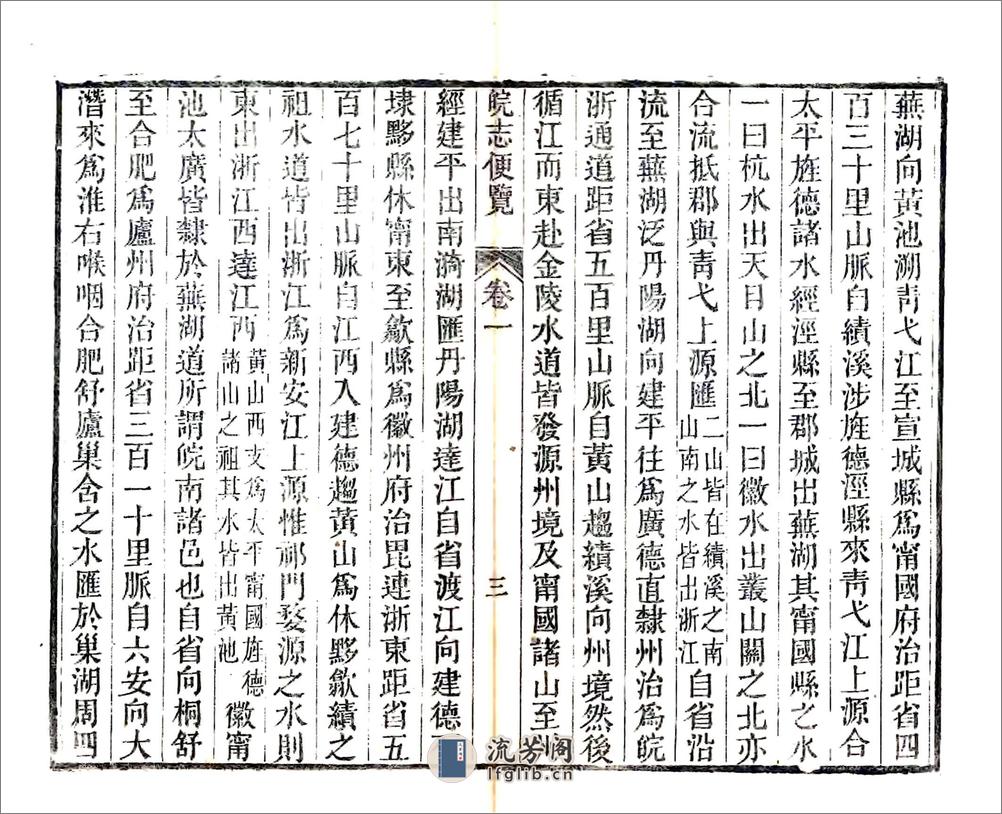 蕪湖向黃池溯靑弋江至宣城縣爲甯國府治距省四
百三十里山脈自績溪涉旌德涇縣來靑弋江上源合
太平旌德諸水經涇縣至郡城出蕪湖其甯國縣之水
一曰杭水出天目山之北一曰徽水出叢山關之北亦
合流抵郡與靑弋上源匯二山皆在績溪之南山南之水皆出浙江自省沿
流至蕪湖泛丹陽湖向建平往爲廣德直隸州治爲皖
浙通道距省五百里山脈自黃山趨績溪向州境然後
循江而東赴金陵水道皆發源州境及甯國諸山至
皖志便覽 卷一 三
經建平出南漪湖匯丹陽湖達江自省渡江向建德
埭黟縣休甯東至歙縣爲徽州府治毘連浙東距省五
百七十里山脈自江西入建德趨黃山爲休黟歙績之
祖水道皆出浙江爲新安江上源惟祁門婺源之水則
東出浙江西達江西黃山西支爲太平甯國旌德諸山之祖其水皆出黃池徽甯
池太廣皆隸於蕪湖道所謂皖南諸邑也自省向桐舒
至合肥爲廬州府治距省三百一十里脈自六安向大
潛來爲淮右喉咽合肥舒廬巢含之水匯於巢湖周四
流芳阁
lfglib.cn